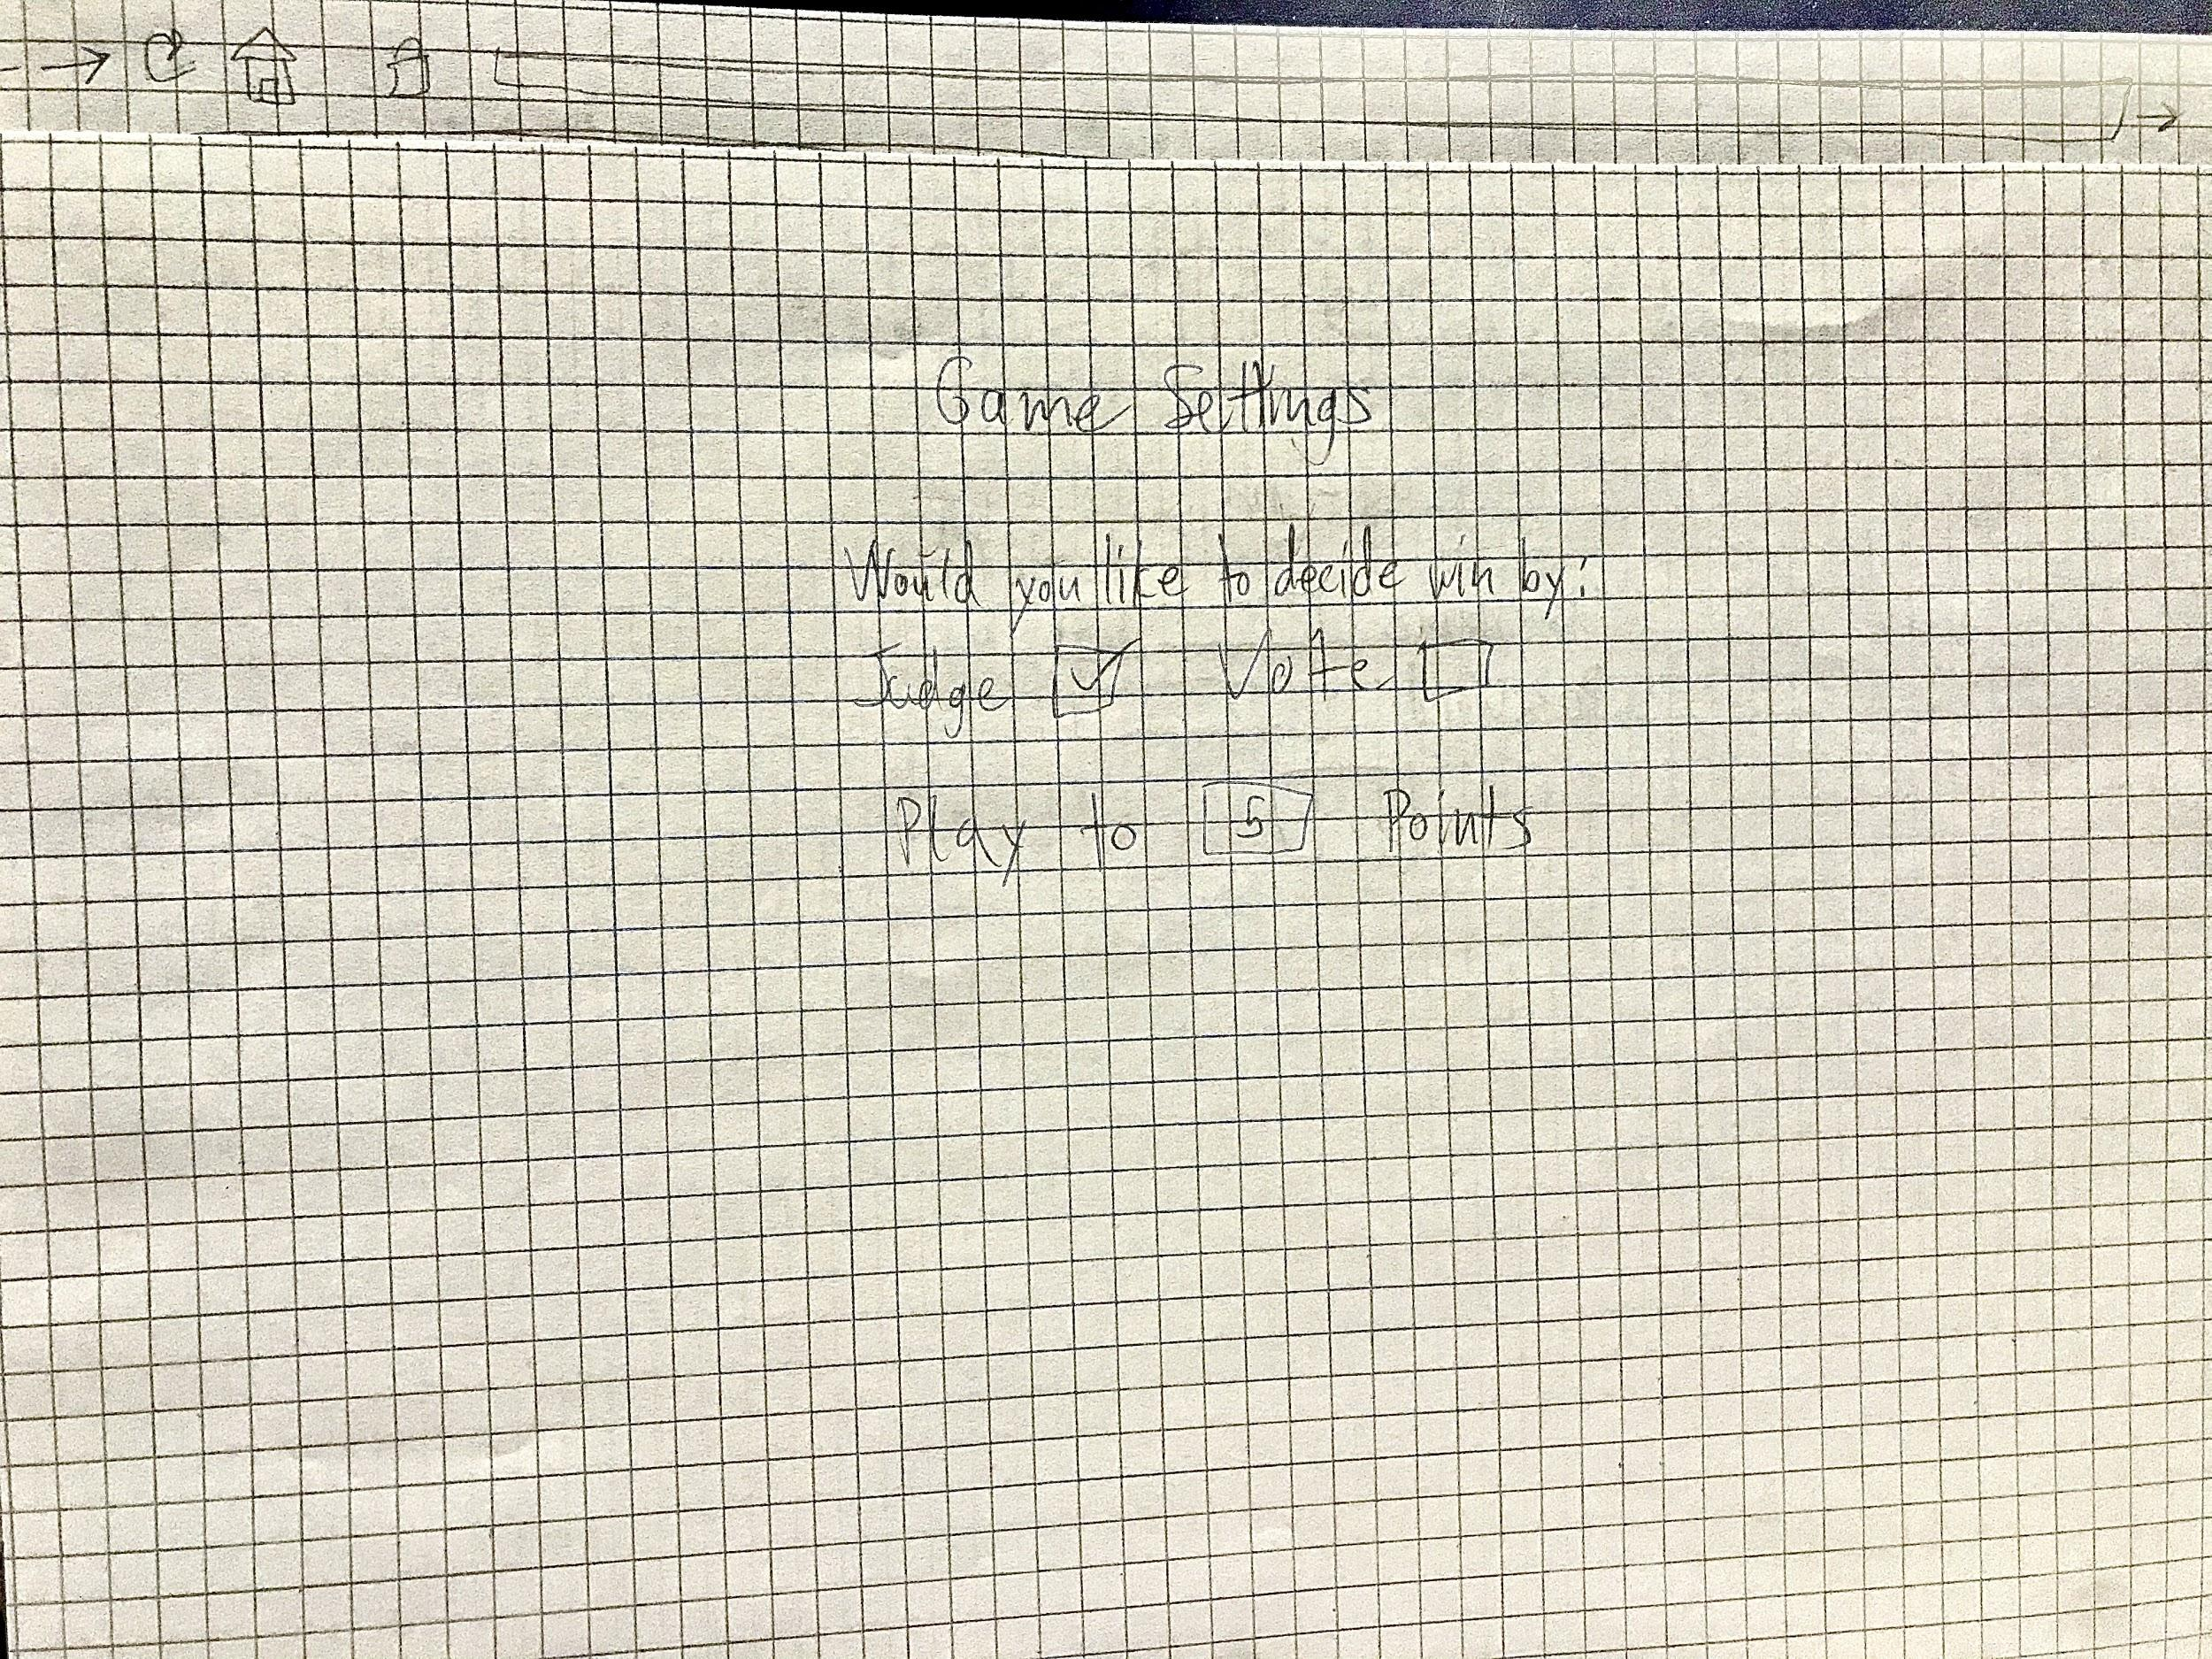 Game Settings
Would you like to decide win by:
Judge Vote
Play to 5 Points